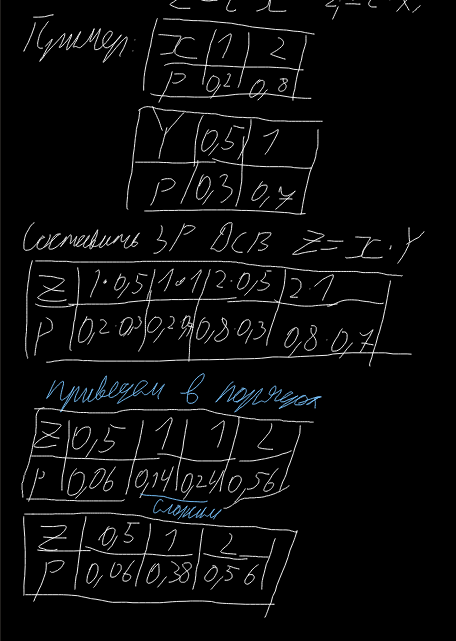 Пример:
X 1 2
P 0,2 0,8
Y 0,5 1
P 0,3 0,7
Составить ЗР ДСВ Z = X · Y
Z 1·0,5 1·1 2·0,5 2·1
P 0,2·0,3 0,8·0,3 0,8·0,7
приведем в порядок
Z 0,5 1 1 2
P 0,06 0,14 0,24 0,56
сложим
Z 0,5 1 2
P 0,06 0,38 0,56